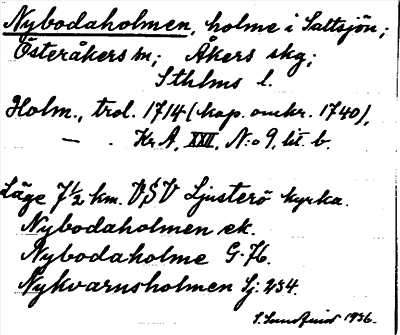 Nybodaholmen, holme i Saltsjön;
Österåkers sn; Åkers skg;
Sthlms l.
Holm., trol. 1714 (kop. omkr. 1740),
— . Kr A, XXII, N:o 9, lit. b.
Läge 7½ km. VSV Ljusterö kyrka.
Nybodaholmen ek.
Nybodaholme G. 76.
Nykvarnsholmen Sj. 234.
S. Sundfund 1936.